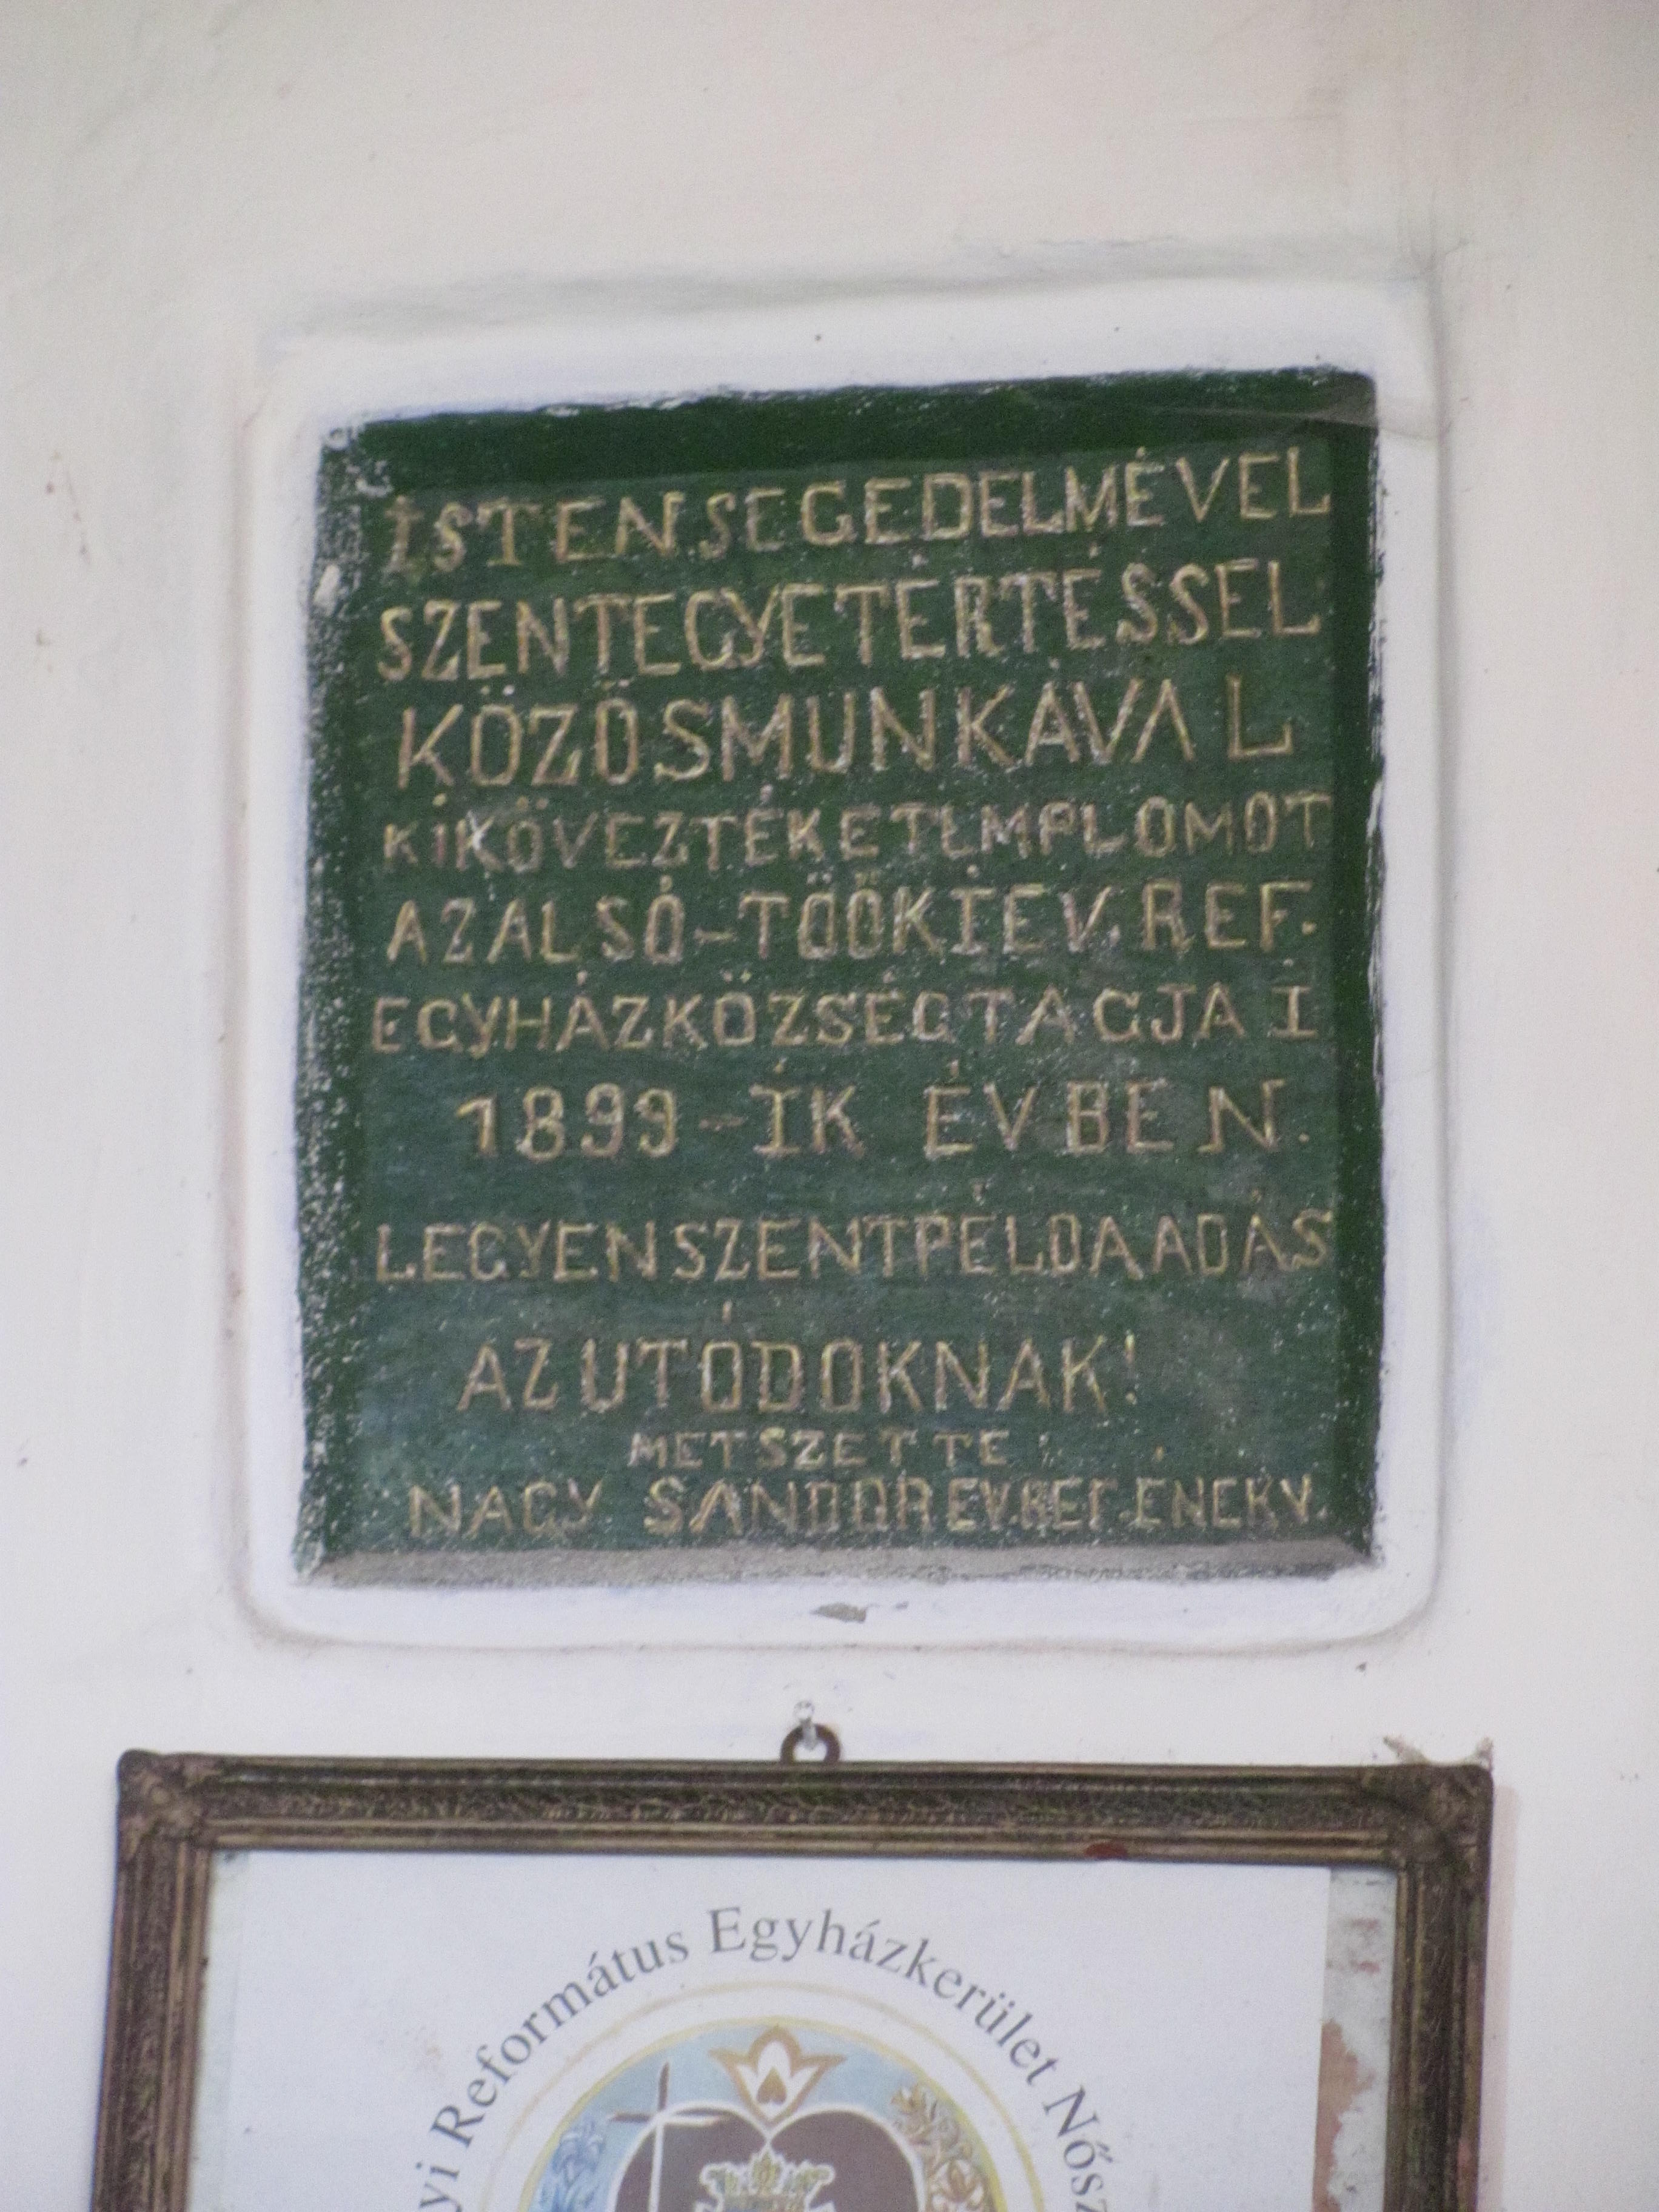 ISTEN SEGEDELMÉVEL
SZENT EGYETÉRTÉSSEL
KÖZÖS MUNKÁVAL
KIKÖVEZTÉK E TEMPLOMOT
AZ ALSÓ-TÖÖKI EV. REF.
EGYHÁZKÖZSÉG TAGJAI
1899-IK ÉVBEN.
LEGYEN SZENT PÉLDAADÁS
AZ UTÓDOKNAK!
METSZETTE
NAGY SÁNDOR EV. REF. ÉNEKV.
Református Egyházkerület